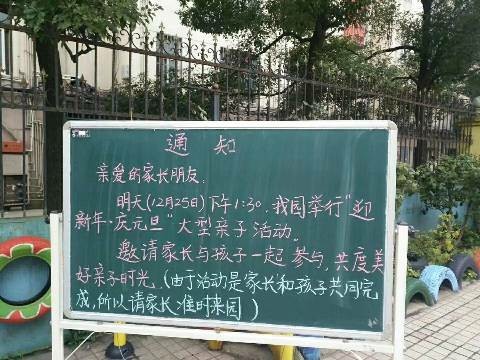 通 知
亲爱的家长朋友.
明天(12月25日)下午1:30.我园举行"迎
新年·庆元旦"大型亲子活动。
邀请家长与孩子一起参与,共度美
好亲子时光.(由于活动是家长和孩子共同完
成,所以请家长准时来园)